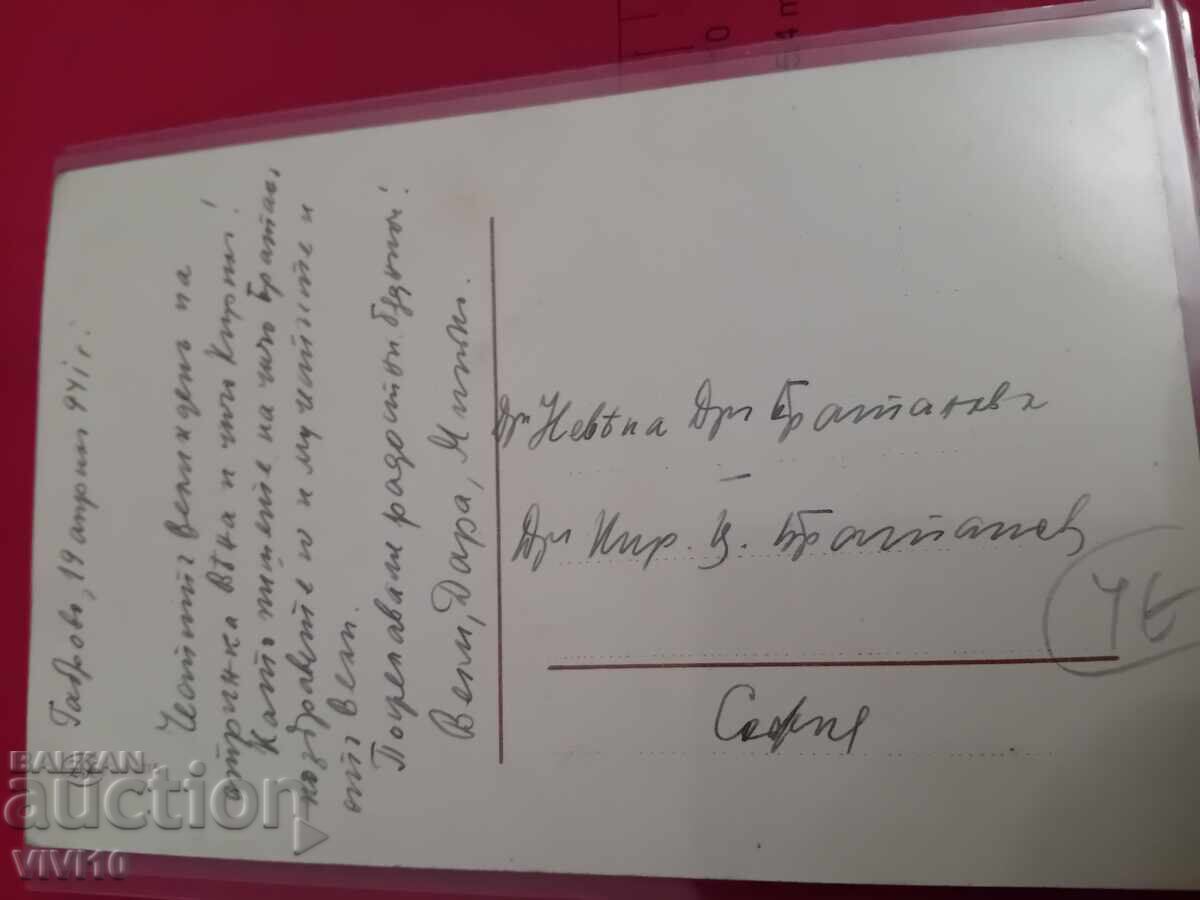 Габрово, 19 април 941 г.
Честитъ Великденъ на
стринка Вѣна и чичо Кирчо!
Като пишете на чичо Братан,
поздравете го и му честите и
отъ Вели.
Пожелавам радостни бъднини!
Вели, Дара, Мичи.
Др. Невѣна Др. Братанова
–
Др. Кир. Ц. Братанов
София
4€
BALKAN
auction
VIVI10